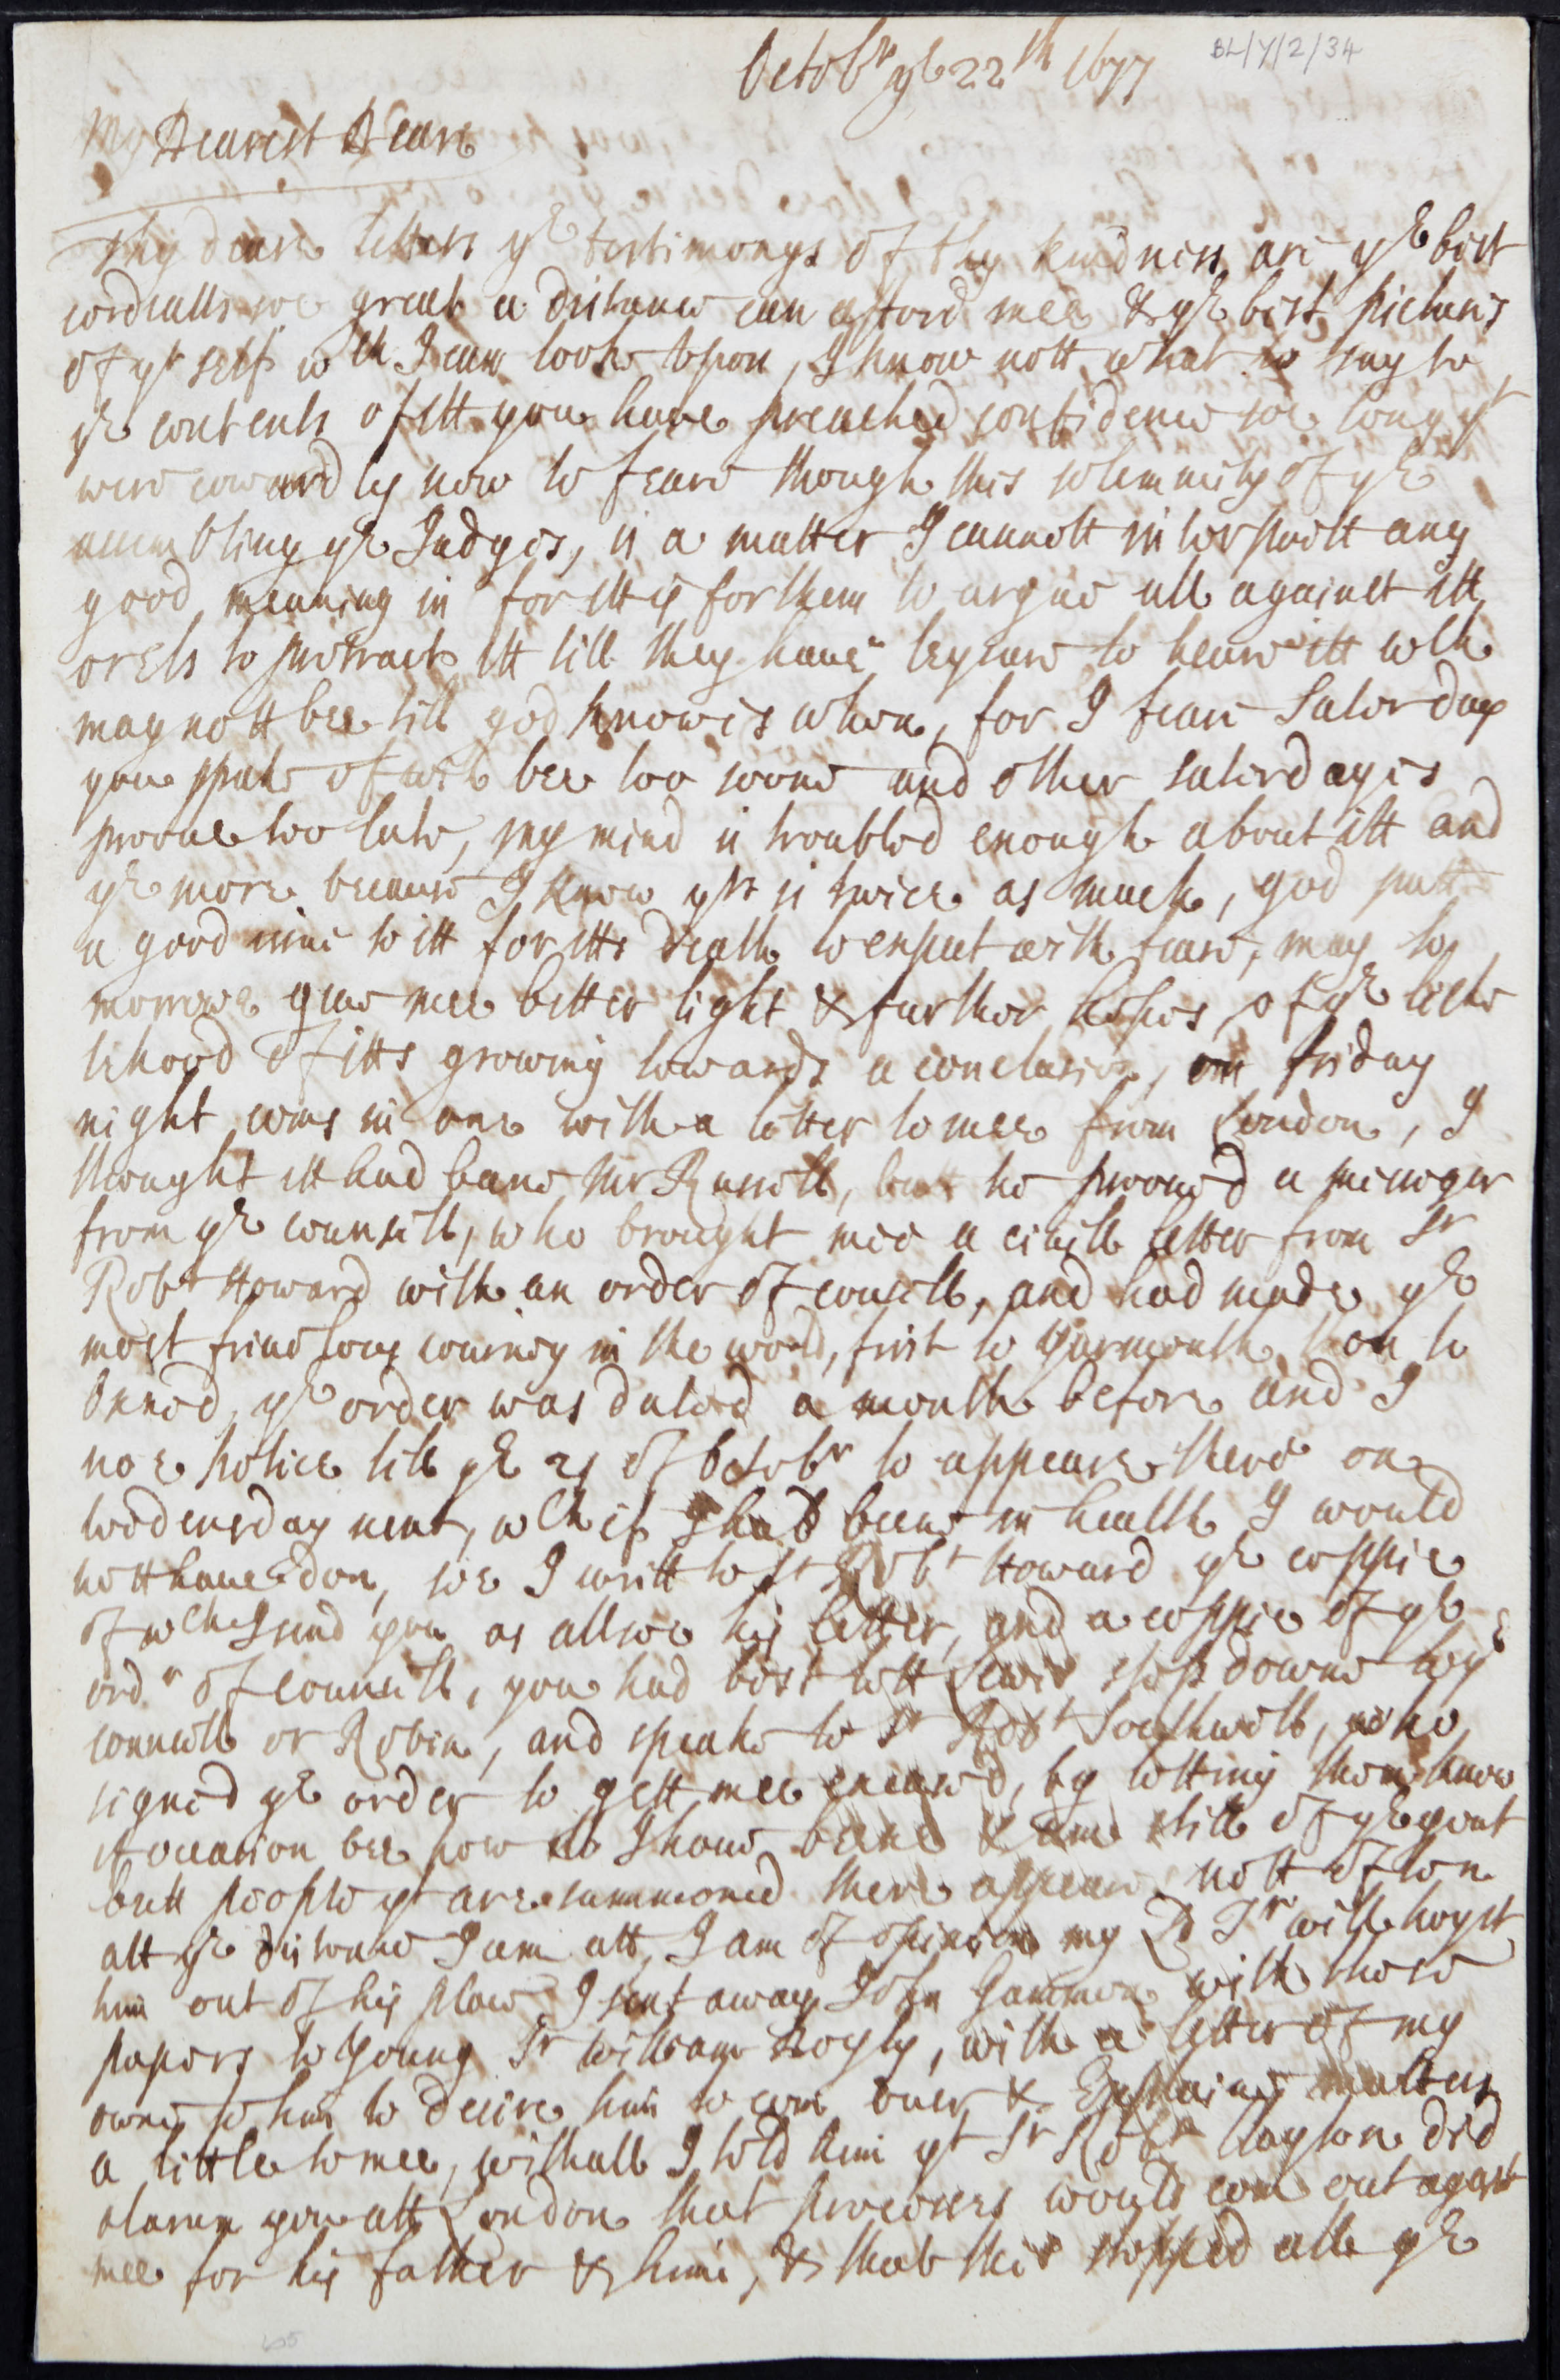 BL/Y/2/34
Octobr ye 22th 1677
My Dearest Deare
Thy deare letters ye testimonys of thy kindness are ye best
cordealls soe great a distance can afford mee & ye best pictures
of yr self wch I can looke upon, I know nott what to say to
ye contents of itt you have preached confidence soe long yt
were cowardly now to feare though this solemnity of ye
assembling ye Judges, is a matter I cannott interprett any
good meaning in for itt is for them to argue all against itt
or els to protract itt till they have leysure to heare itt wch
may nott bee till god knowes when, for I feare Saterday
you speake of will bee too soone and other saterdayes
proove too late, my mind is troubled enough about itt and
ye more because I know yrs is twice as much, god putt
a good end to itt for itts death to expect with feare, may to
morrowe give mee better light & further hopes of ye like
lihood of itts growing towards a conclusion, on friday
night coms in one with a letter to mee from London, I
thought itt had beene Mr Russell, butt he prooved a messinger
from ye counsell, who brought mee a civill letter from Sr
Robt Howard with an order of counsell, and had made ye
most frindlong journey in the world, first to Yarmouth then to
Oxned, ye order was dated a month before and I
noe notice till ye 21 of Octobr to appeare there on
wedensday next, wch if I had beene in health I would
nott have don, soe I writt to Sr Robt Howard ye coppie
of wch I send you as allsoe his letter, and a coppie of ye
ordr of counsell, you had best lett Lewis step downe to ye
counsell or Robin, and speake to Sr Robt Southwell, who
signed ye order to gett mee excused, by letting them know
if occasion bee how ill I have beene & am still of ye gout
butt people yt are summoned there appeare nott often
att ye distance I am att, I am of opinion my Ld Tr will hoyst
him out of his place I sent away John Gammon with those
papers to young Sr William Doyly, with a letter of my
owne to him to desire him to com over & Explaine matters
a little to mee, withall I told him yt Sr Robt Clayton did
alarum you att London that processes would com out agast
mee for his father & him, & that this stopped all ye